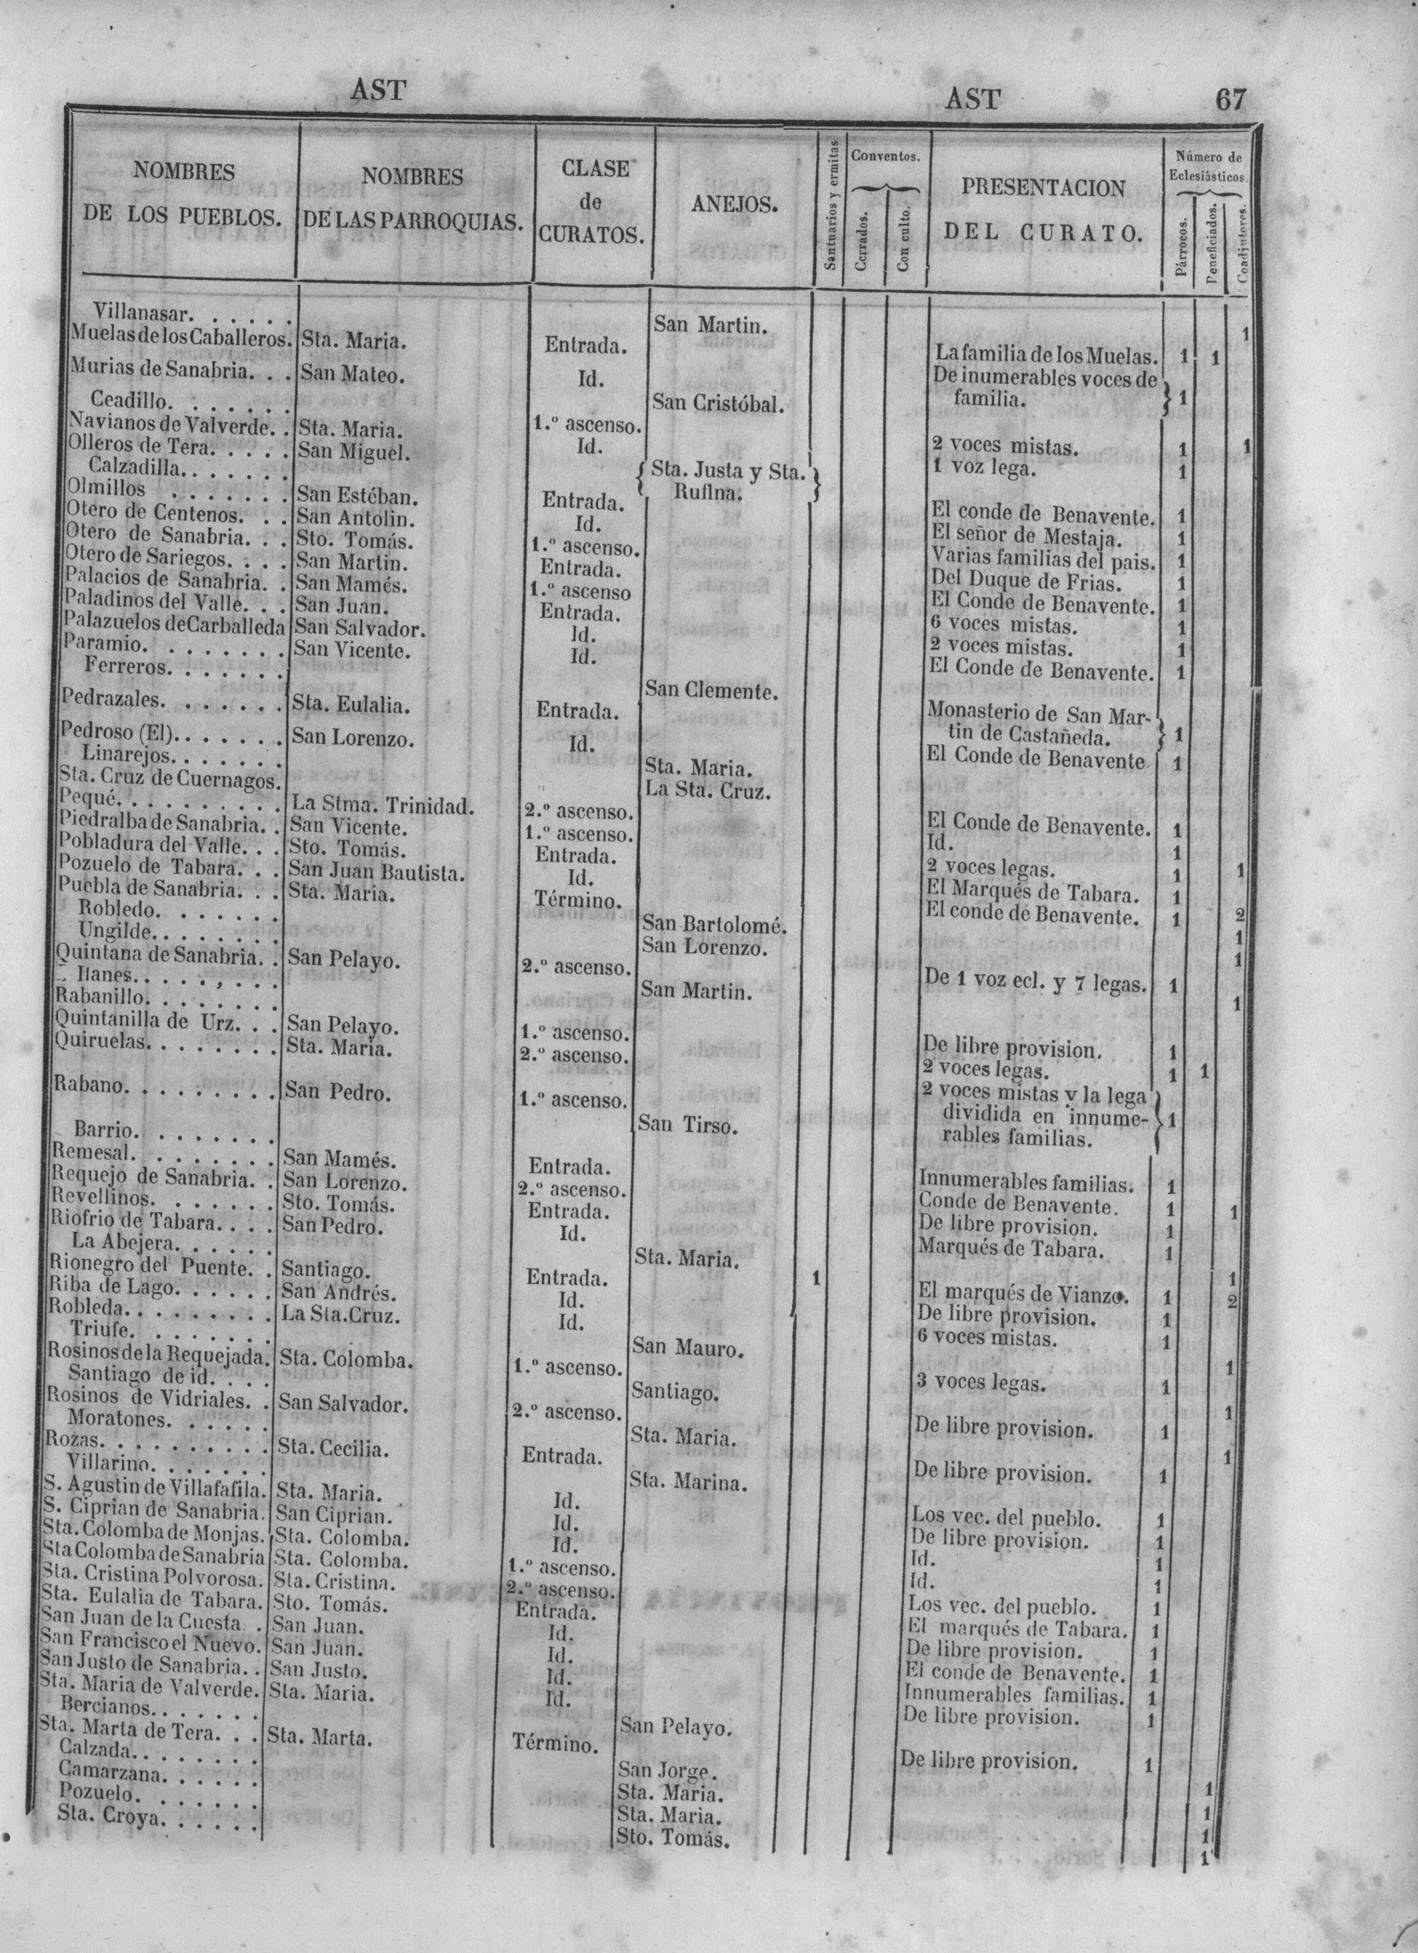 AST AST 67
NOMBRES DE LOS PUEBLOS. NOMBRES DE LAS PARROQUIAS. CLASE de CURATOS. ANEJOS. Santuarios y ermitas Conventos. Cerrados. Con culto. PRESENTACION DEL CURATO. Número de Eclesiásticos. Párrocos. Beneficiados. Coadjutores.
Villanasar. . . . . . San Martin. 1
Muelas de los Caballeros. Sta. Maria. Entrada. La familia de los Muelas. 1 1
Murias de Sanabria. . . San Mateo. Id. De inumerables voces de familia. } 1
Ceadillo. . . . . . . San Cristóbal.
Navianos de Valverde. . Sta. Maria. 1.º ascenso. 2 voces mistas. 1 1
Olleros de Tera. . . . . San Miguel. Id. 1 voz lega. 1
Calzadilla. . . . . . { Sta. Justa y Sta. Rufina. }
Olmillos . . . . . . . San Estéban. Entrada. El conde de Benavente. 1
Otero de Centenos. . . San Antolin. Id. El señor de Mestaja. 1
Otero de Sanabria. . . Sto. Tomás. 1.º ascenso. Varias familias del pais. 1
Otero de Sariegos. . . . San Martin. Entrada. Del Duque de Frias. 1
Palacios de Sanabria. . San Mamés. 1.º ascenso El Conde de Benavente. 1
Paladinos del Valle. . . San Juan. Entrada. 6 voces mistas. 1
Palazuelos de Carballeda San Salvador. Id. 2 voces mistas. 1
Paramio. . . . . . . . San Vicente. Id. El Conde de Benavente. 1
Ferreros. . . . . . . San Clemente.
Pedrazales. . . . . . . Sta. Eulalia. Entrada. Monasterio de San Martin de Castañeda. } 1
Pedroso (El). . . . . . . San Lorenzo. Id. El Conde de Benavente 1
Linarejos. . . . . . . Sta. Maria.
Sta. Cruz de Cuernagos. La Sta. Cruz.
Pequé. . . . . . . . . . La Stma. Trinidad. 2.º ascenso. El Conde de Benavente. 1
Piedralba de Sanabria. . San Vicente. 1.º ascenso. Id. 1
Pobladura del Valle. . . Sto. Tomás. Entrada. 2 voces legas. 1 1
Pozuelo de Tabara. . . San Juan Bautista. Id. El Marqués de Tabara. 1
Puebla de Sanabria. . . Sta. Maria. Término. El conde de Benavente. 1 2
Robledo. . . . . . . San Bartolomé. 1
Ungilde. . . . . . . . San Lorenzo. 1
Quintana de Sanabria. . San Pelayo. 2.º ascenso. De 1 voz ecl. y 7 legas. 1
Ilanes. . . . . , . . . San Martin. 1
Rabanillo. . . . . . . .
Quintanilla de Urz. . . San Pelayo. 1.º ascenso. De libre provision. 1
Quiruelas. . . . . . . . Sta. Maria. 2.º ascenso. 2 voces legas. 1 1
Rabano. . . . . . . . . San Pedro. 1.º ascenso. 2 voces mistas y la lega dividida en innumerables familias. } 1
Barrio. . . . . . . . San Tirso.
Remesal. . . . . . . . San Mamés. Entrada. Innumerables familias. 1
Requejo de Sanabria. . San Lorenzo. 2.º ascenso. Conde de Benavente. 1 1
Revellinos. . . . . . . Sto. Tomás. Entrada. De libre provision. 1
Riofrio de Tabara. . . . San Pedro. Id. Marqués de Tabara. 1
La Abejera. . . . . . Sta. Maria. 1
Rionegro del Puente. . Santiago. Entrada. 1 El marqués de Vianzo. 1 2
Riba de Lago. . . . . . San Andrés. Id. De libre provision. 1
Robleda. . . . . . . . . La Sta. Cruz. Id. 6 voces mistas. 1
Triufe. . . . . . . . San Mauro. 1
Rosinos de la Requejada. Sta. Colomba. 1.º ascenso. 3 voces legas. 1
Santiago de id. . . . Santiago. 1
Rosinos de Vidriales. . San Salvador. 2.º ascenso. De libre provision. 1
Moratones. . . . . . Sta. Maria. 1
Rozas. . . . . . . . . . Sta. Cecilia. Entrada. De libre provision. 1
Villarino. . . . . . . Sta. Marina.
S. Agustin de Villafafila. Sta. Maria. Id. Los vec. del pueblo. 1
S. Ciprian de Sanabria. San Ciprian. Id. De libre provision. 1
Sta. Colomba de Monjas. Sta. Colomba. Id. Id. 1
Sta Colomba de Sanabria Sta. Colomba. 1.º ascenso. Id. 1
Sta. Cristina Polvorosa. Sta. Cristina. 2.º ascenso. Los vec. del pueblo. 1
Sta. Eulalia de Tabara. Sto. Tomás. Entrada. El marqués de Tabara. 1
San Juan de la Cuesta . San Juan. Id. De libre provision. 1
San Francisco el Nuevo. San Juan. Id. El conde de Benavente. 1
San Justo de Sanabria. . San Justo. Id. Innumerables familias. 1
Sta. Maria de Valverde. Sta. Maria. Id. De libre provision. 1
Bercianos. . . . . . . San Pelayo.
Sta. Marta de Tera. . . Sta. Marta. Término. De libre provision. 1
Calzada. . . . . . . . San Jorge. 1
Camarzana. . . . . . Sta. Maria. 1
Pozuelo. . . . . . . Sta. Maria. 1
Sta. Croya. . . . . . Sto. Tomás. 1